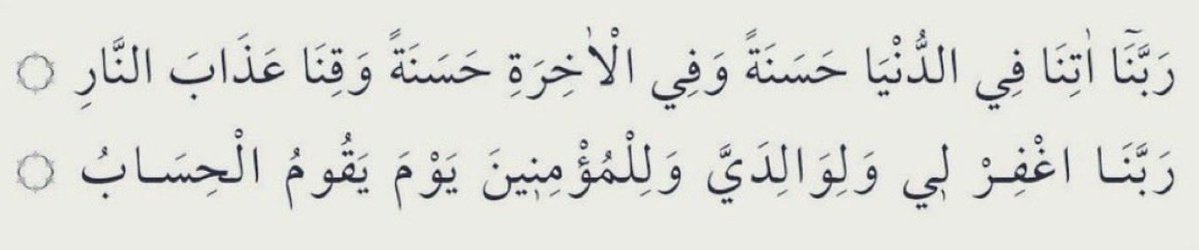 رَبَّنَٓا اٰتِنَا فِي الدُّنْيَا حَسَنَةً وَفِي الْاٰخِرَةِ حَسَنَةً وَقِنَا عَذَابَ النَّارِ ۝
رَبَّنَا اغْفِرْ ل۪ي وَلِوَالِدَيَّ وَلِلْمُؤْمِن۪ينَ يَوْمَ يَقُومُ الْحِسَابُ ۝